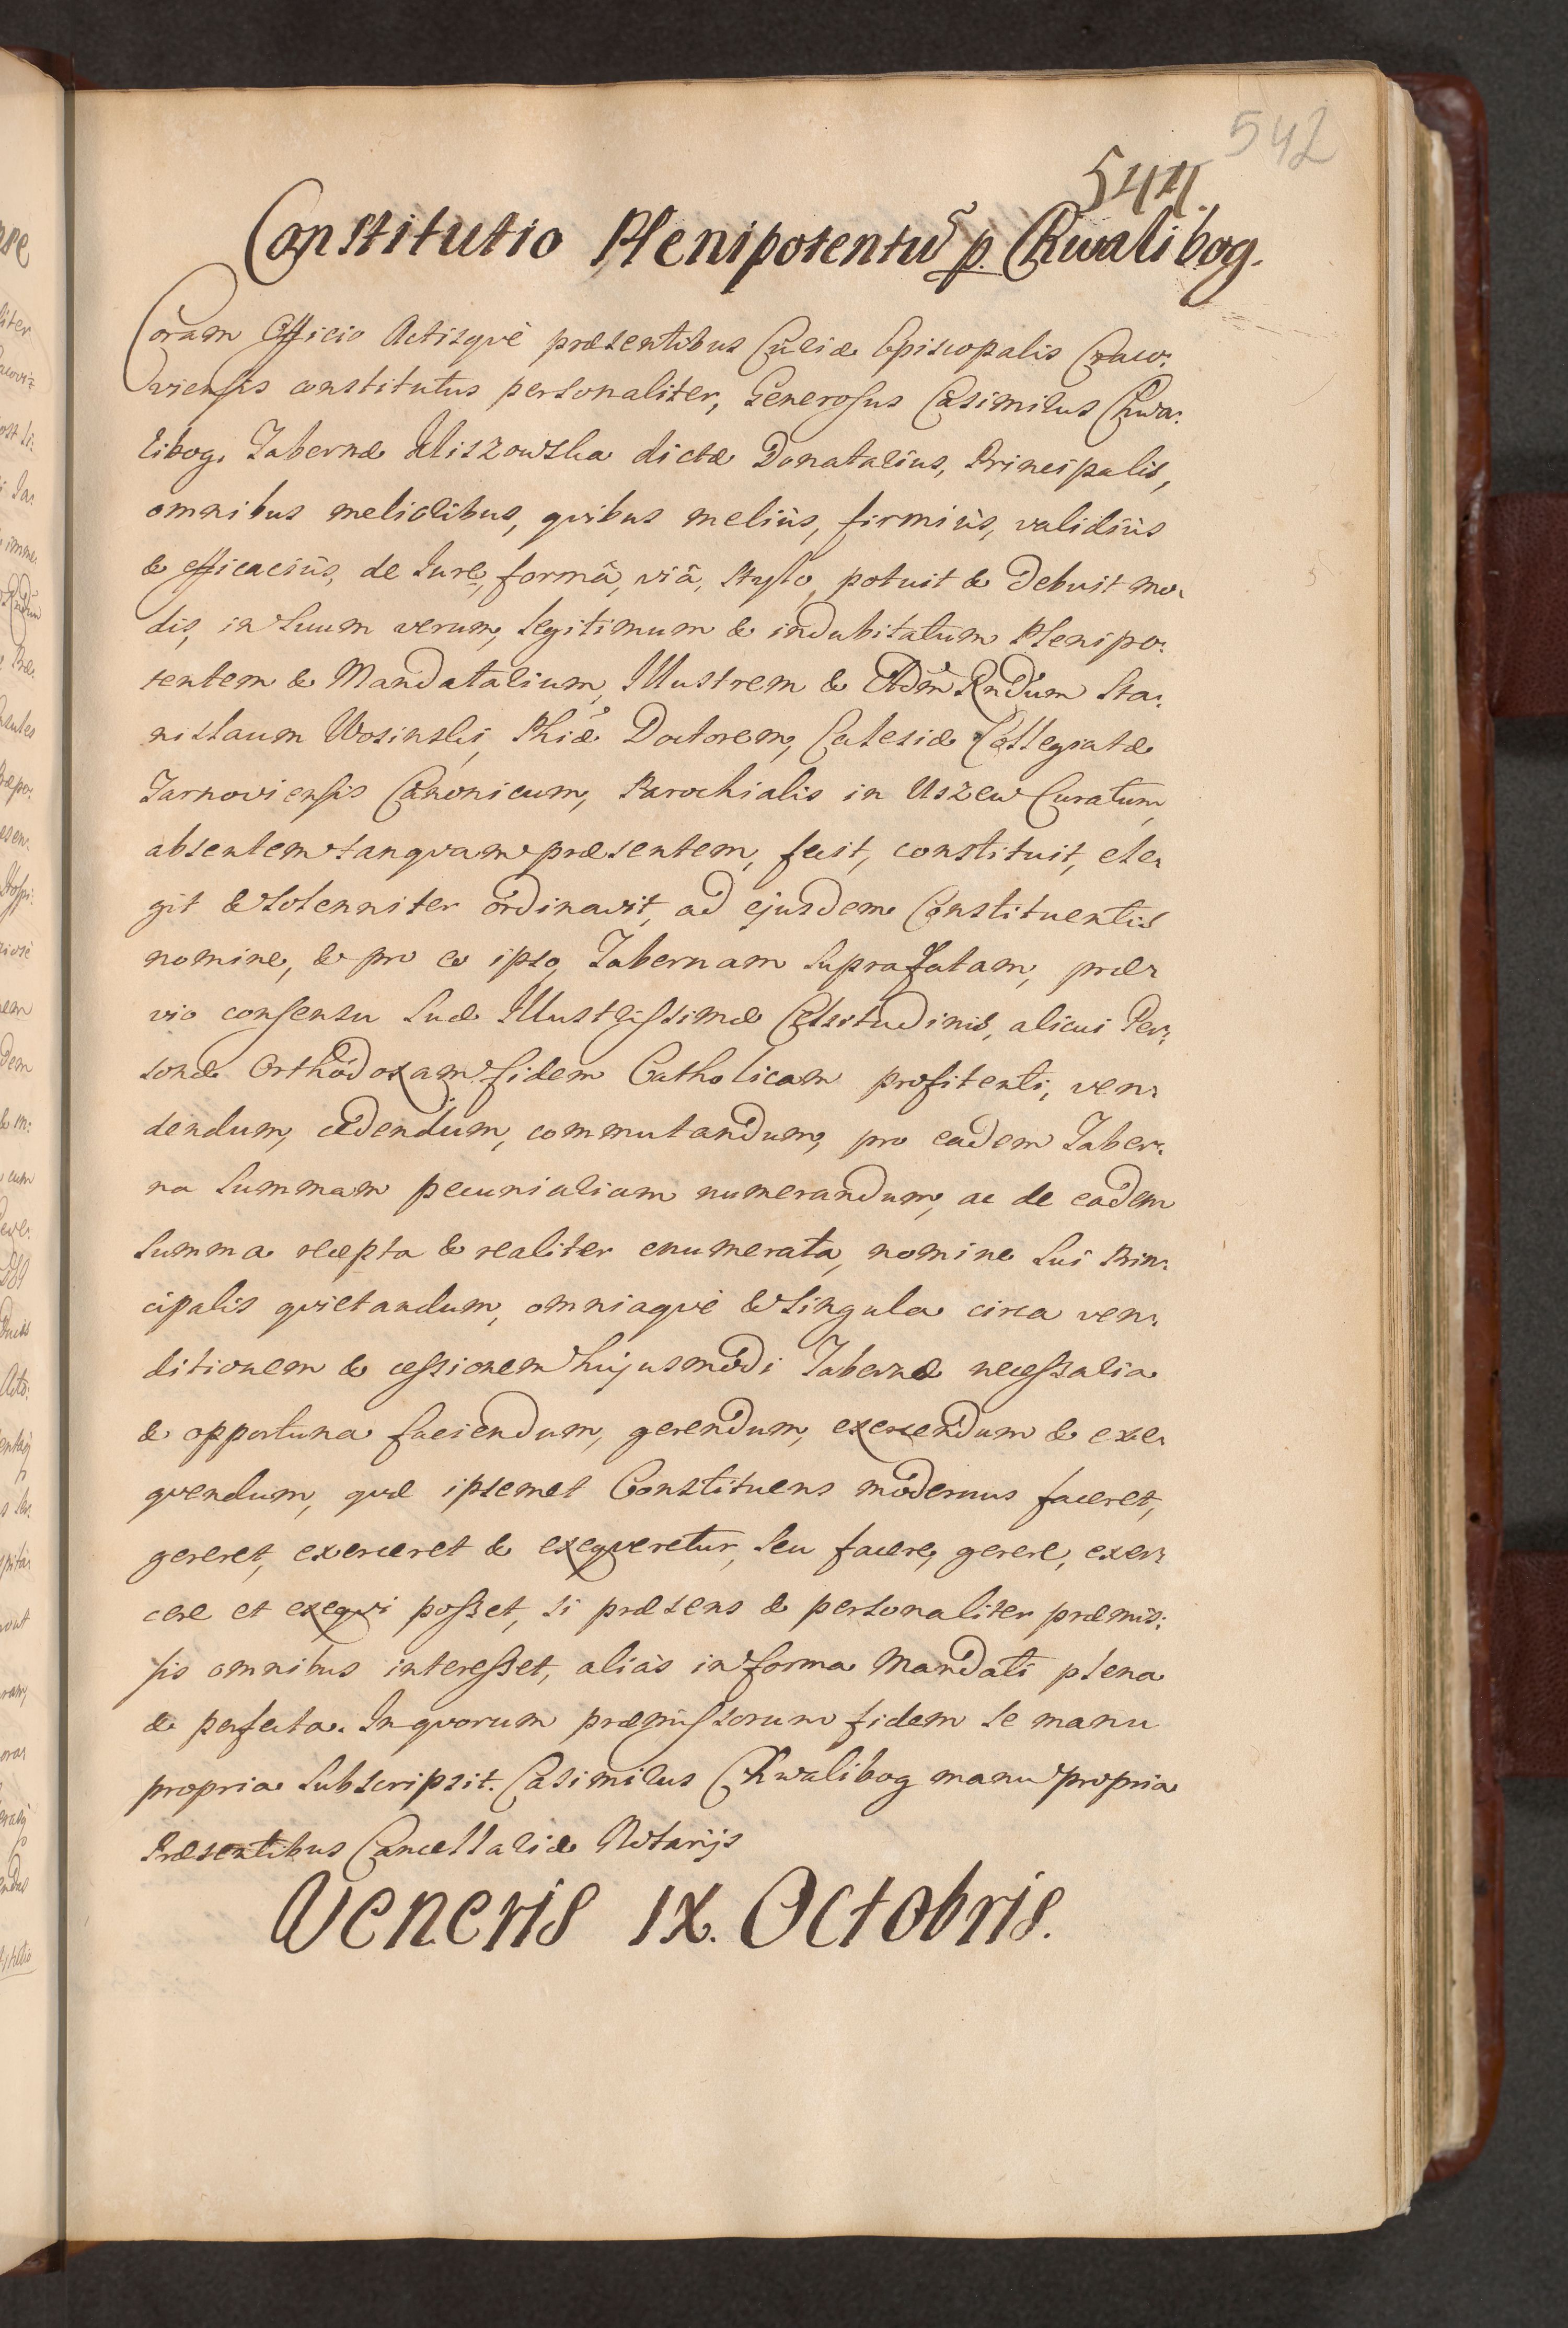 542
544.
Constitutio Plenipotentis p. Chwalibog.
Coram Officio Actisque præsentibus Curiæ Episcopalis Craco:
viensis constitutus personaliter, Generosus Casimirus Chwa:
libog, Tabernæ Kliszowska dictæ Donatarius, Principalis,
omnibus melioribus, quibus meliùs, firmiùs, validiùs
& efficaciùs, de Jure, formâ, viâ, stylo, potuit & debuit mo:
dis, in suum verum, legitimum & indubitatum Plenipo:
tentem & Mandatarium, Illustrem & Adm Rndum Sta:
nislaum Wosinski, Phiæ Doctorem, Eclesiæ Collegiatæ
Tarnoviensis Canonicum, Parochialis in Uszew Curatum,
absentem tanquam præsentem, fecit, constituit, ele:
git & solenniter ordinavit, ad ejusdem Constituentis
nomine, & pro eo ipso, Tabernam suprafatam, præ:
vio consensu suæ Illustrissimæ Celsitudinis, alicui Per:
sonæ Orthodoxam fidem Catholicam profitenti, ven:
dendum, cedendum, commutandum, pro eadem Taber:
na summam pecuniariam numerandum, ac de eadem
summa recepta & realiter enumerata, nomine sui Prin:
cipalis quietandum, omniaque & singula circa ven:
ditionem & cessionem hujusmodi Tabernæ necessaria
& opportuna faciendum, gerendum, exercendum & exe:
quendum, quæ ipsemet Constituens modernus faceret,
gereret, exerceret & exequeretur, seu facere, gerere, exer:
cere et exequi posset, si præsens & personaliter præmis:
sis omnibus interesset, aliàs in forma Mandati plena
& perfecta. In quorum præmissorum fidem se manu
propria subscripsit. Casimirus Chwalibog manu propria
Præsentibus Cancellariæ Notarijs
Veneris IX. Octobris.